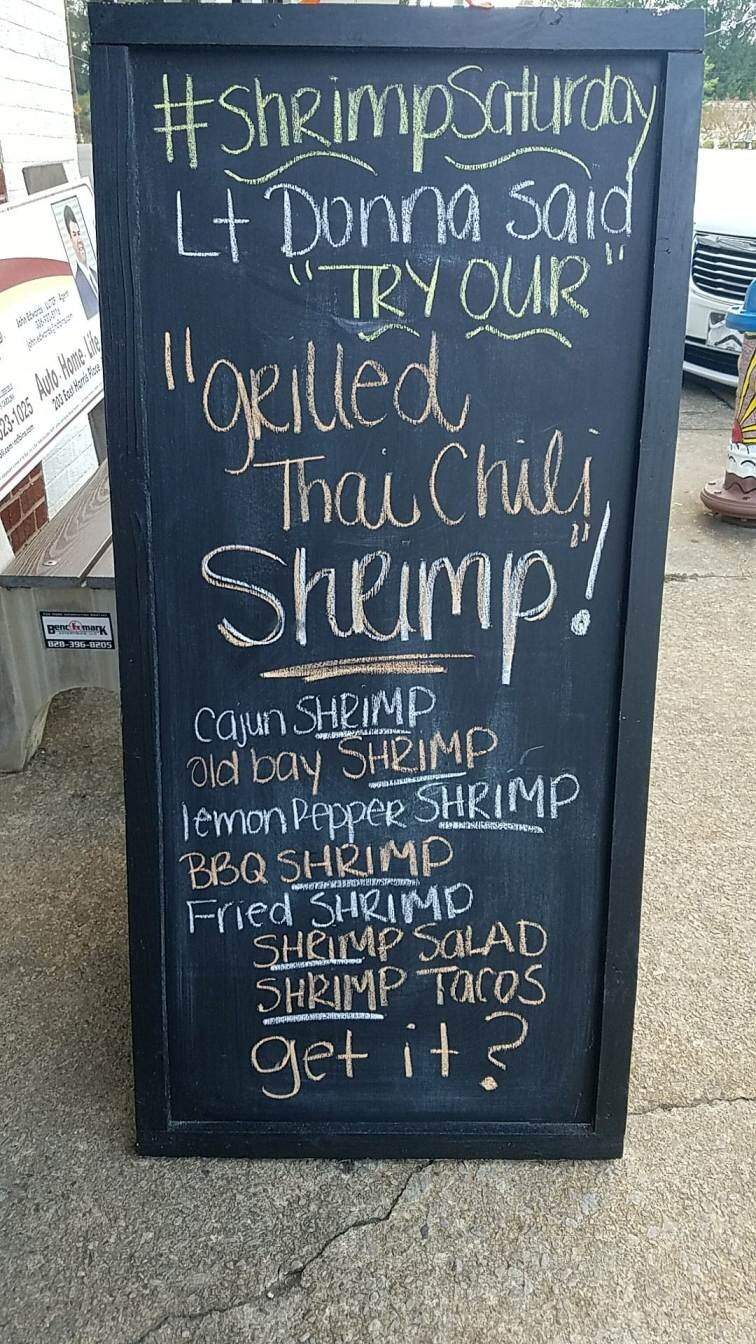 #ShrimpSaturday
Lt Donna said
"TRY OUR"
"grilled
Thai Chili
Shrimp"!
Cajun SHRIMP
old bay SHRIMP
lemon Pepper SHRIMP
BBQ SHRIMP
Fried SHRIMP
SHRIMP SALAD
SHRIMP Tacos
get it?
Auto. Home. Life
203 East Harris Place
23-1025
Benchmark
828-396-8205